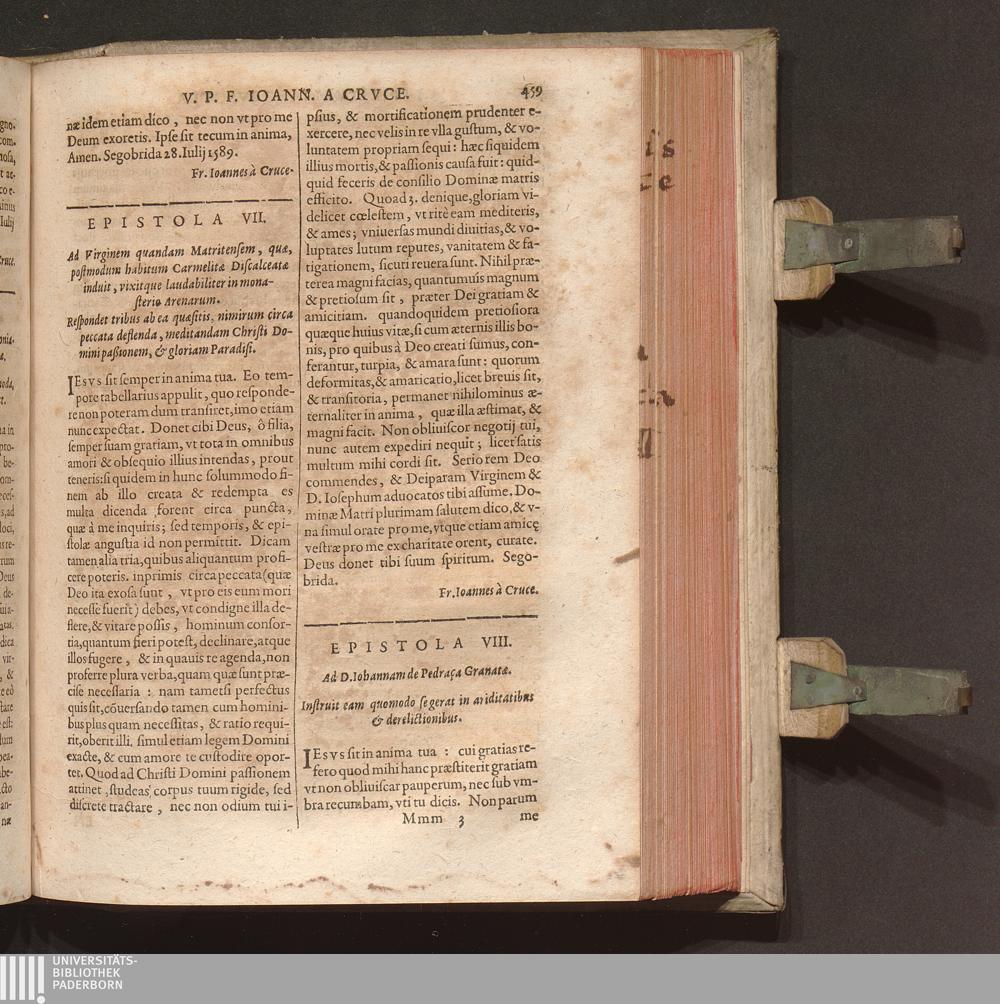 V. P. F. IOANN. A CRVCE.
459
næ idem etiam dico, nec non vt pro me
Deum exoretis. Ipse sit tecum in anima,
Amen. Segobrida 28. Iulij 1589.
Fr. Ioannes à Cruce.
EPISTOLA VII.
Ad Virginem quandam Matritensem, quæ,
postmodum habitum Carmelitæ Discalceatæ
induit, vixitque laudabiliter in mona-
sterio Arenarum.
Respondet tribus ab ea quæsitis, nimirum circa
peccata deflenda, meditandam Christi Do-
mini passionem, & gloriam Paradisi.
IEsvs sit semper in anima tua. Eo tem-
pore tabellarius appulit, quo responde-
re non poteram dum transiret, imo etiam
nunc expectat. Donet cibi Deus, ô filia,
semper suam gratiam, vt tota in omnibus
amori & obsequio illius intendas, prout
teneris: si quidem in hunc solummodo fi-
nem ab illo creata & redempta es
multa dicenda forent circa puncta,
quæ à me inquiris; sed temporis, & epi-
stolæ angustia id non permittit. Dicam
tamen alia tria, quibus aliquantum profi-
cere poteris. inprimis circa peccata (quæ
Deo ita exosa sunt, vt pro eis eum mori
necesse fuerit) debes, vt condigne illa de-
flere, & vitare possis, hominum consor-
tia, quantum fieri potest, declinare, atque
illos fugere, & in quauis re agenda, non
proferre plura verba, quam quæ sunt præ-
cise necessaria: nam tametsi perfectus
quis sit, cōuersando tamen cum homini-
bus plus quam necessitas, & ratio requi-
rit, oberit illi. simul etiam legem Domini
exacte, & cum amore te custodire opor-
tet. Quod ad Christi Domini passionem
attinet, studeas corpus tuum rigide, sed
discrete tractare, nec non odium tui i-
psius, & mortificationem prudenter e-
xercere, nec velis in re vlla gustum, & vo-
luntatem propriam sequi: hæc siquidem
illius mortis, & passionis causa fuit: quid-
quid feceris de consilio Dominæ matris
efficito. Quoad 3. denique, gloriam vi-
delicet cœlestem, vt ritè eam mediteris,
& ames; vniuersas mundi diuitias, & vo-
luptates lutum reputes, vanitatem & fa-
tigationem, sicuti reuera sunt. Nihil præ-
terea magni facias, quantumuis magnum
& pretiosum sit, præter Dei gratiam &
amicitiam. quandoquidem pretiosiora
quæque huius vitæ, si cum æternis illis bo-
nis, pro quibus à Deo creati sumus, con-
ferantur, turpia, & amara sunt: quorum
deformitas, & amaricatio, licet breuis sit,
& transitoria, permanet nihilominus æ-
ternaliter in anima, quæ illa æstimat, &
magni facit. Non obliuiscor negotij tui,
nunc autem expediri nequit; licet satis
multum mihi cordi sit. Serio rem Deo
commendes, & Deiparam Virginem &
D. Iosephum aduocatos tibi assume. Do-
minæ Matri plurimam salutem dico, & v-
na simul orate pro me, vtque etiam amicę
vestræ pro me ex charitate orent, curate.
Deus donet tibi suum spiritum. Sego-
brida.
Fr. Ioannes à Cruce.
EPISTOLA VIII.
Ad D. Iohannam de Pedraça Granatæ.
Instruit eam quomodo se gerat in ariditatibus
& derelictionibus.
IEsvs sit in anima tua: cui gratias re-
fero quod mihi hanc præstiterit gratiam
vt non obliuiscar pauperum, nec sub vm-
bra recumbam, vti tu dicis. Non parum
Mmm 3
me
UNIVERSITÄTS-
BIBLIOTHEK
PADERBORN